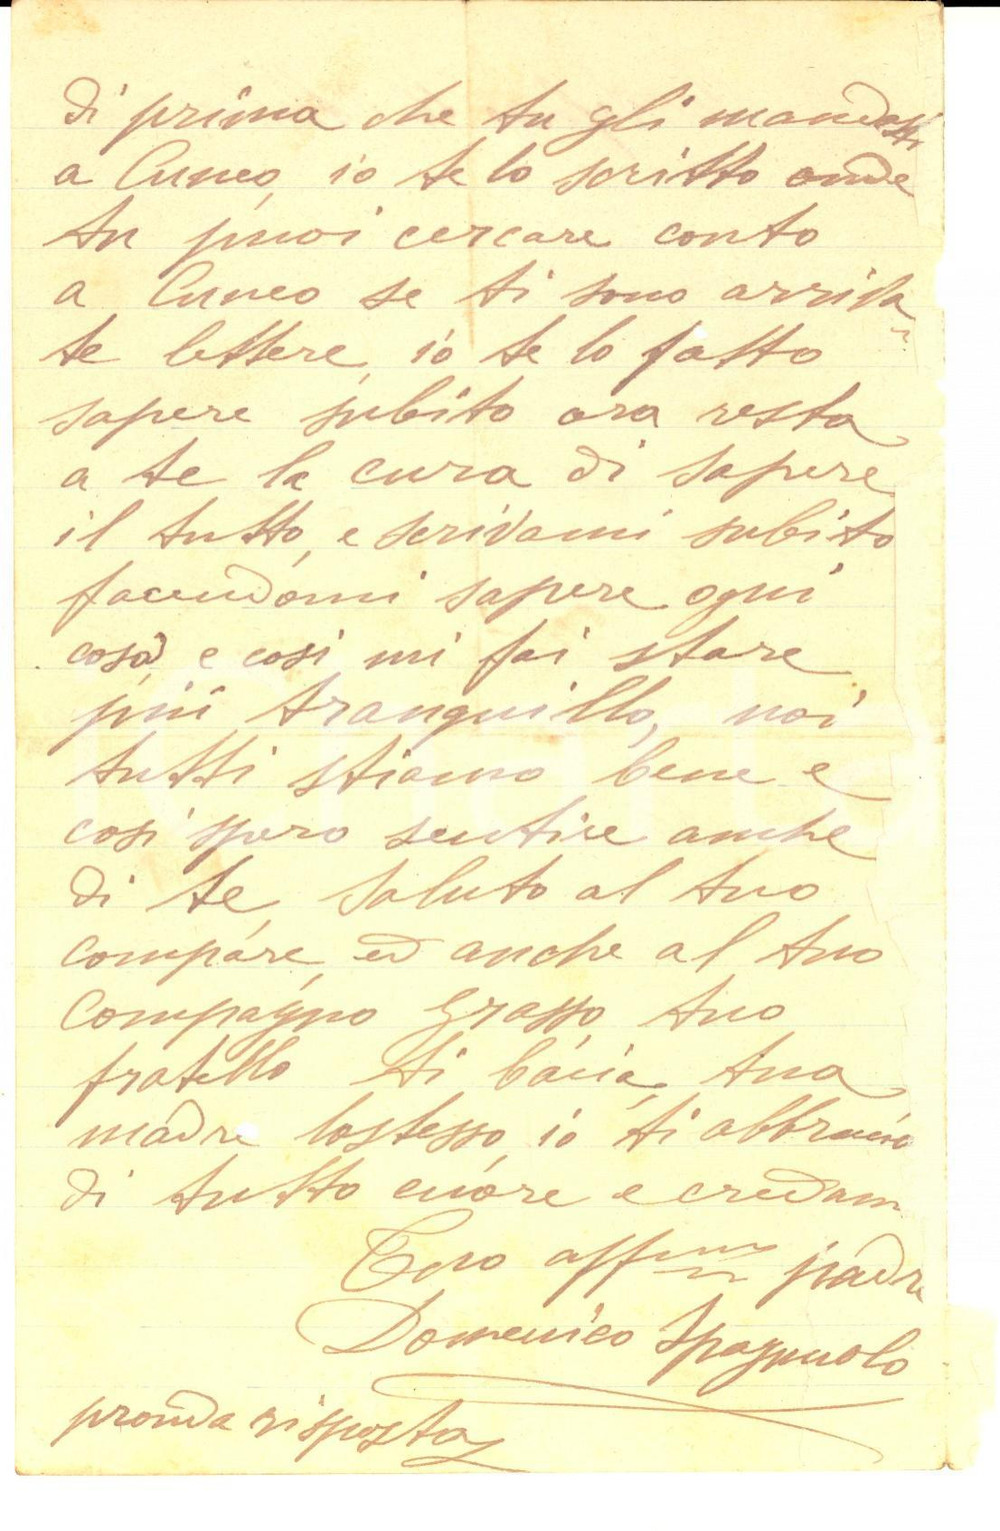 di prima che tu gli mandassi
a Cuneo, io te lo scritto onde
tu puoi cercare conto
a Cuneo se ti sono arriva
te lettere, io te lo fatto
sapere subito ora resta
a te la cura di sapere
il tutto, e scrivami subito
facendomi sapere ogni
cosa, e cosi mi fai stare
più tranquillo, noi
tutti stiamo bene e
cosi spero sentire anche
di te, saluto al tuo
compare, ed anche al tuo
compagno Grasso, tuo
fratello ti bacia, tua
madre lostesso, io ti abbracio
di tutto cuore e credam
Tuo aff padre
Domenico Spagnuolo
pronda risposta